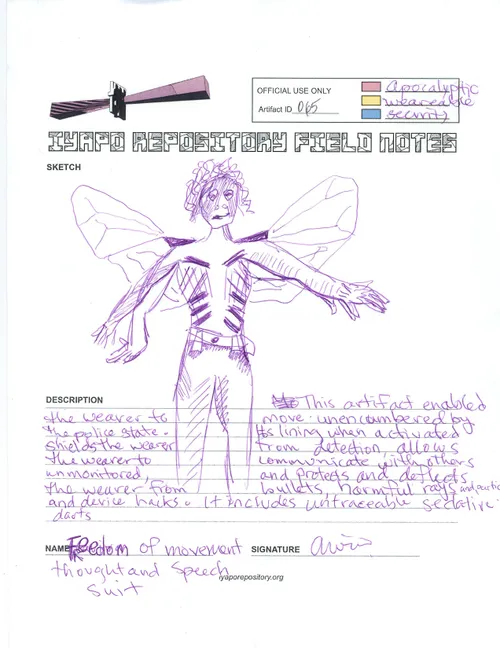 OFFICIAL USE ONLY
Artifact ID 065
Apocalyptic
weareable
security
IYAPO REPOSITORY FIELD NOTES
SKETCH
DESCRIPTION
This artifact enabled
the wearer to move unencumbered by
the police state. Its lining when activated
shields the wearer from detection, allows
the wearer to communicate with others
unmonitored, and protects and deflects
the wearer from bullets harmful rays and
and device hacks. It includes untraceable sedative
darts
NAME Freedom of movement SIGNATURE
thought and Speech
Suit
iyaporepository.org